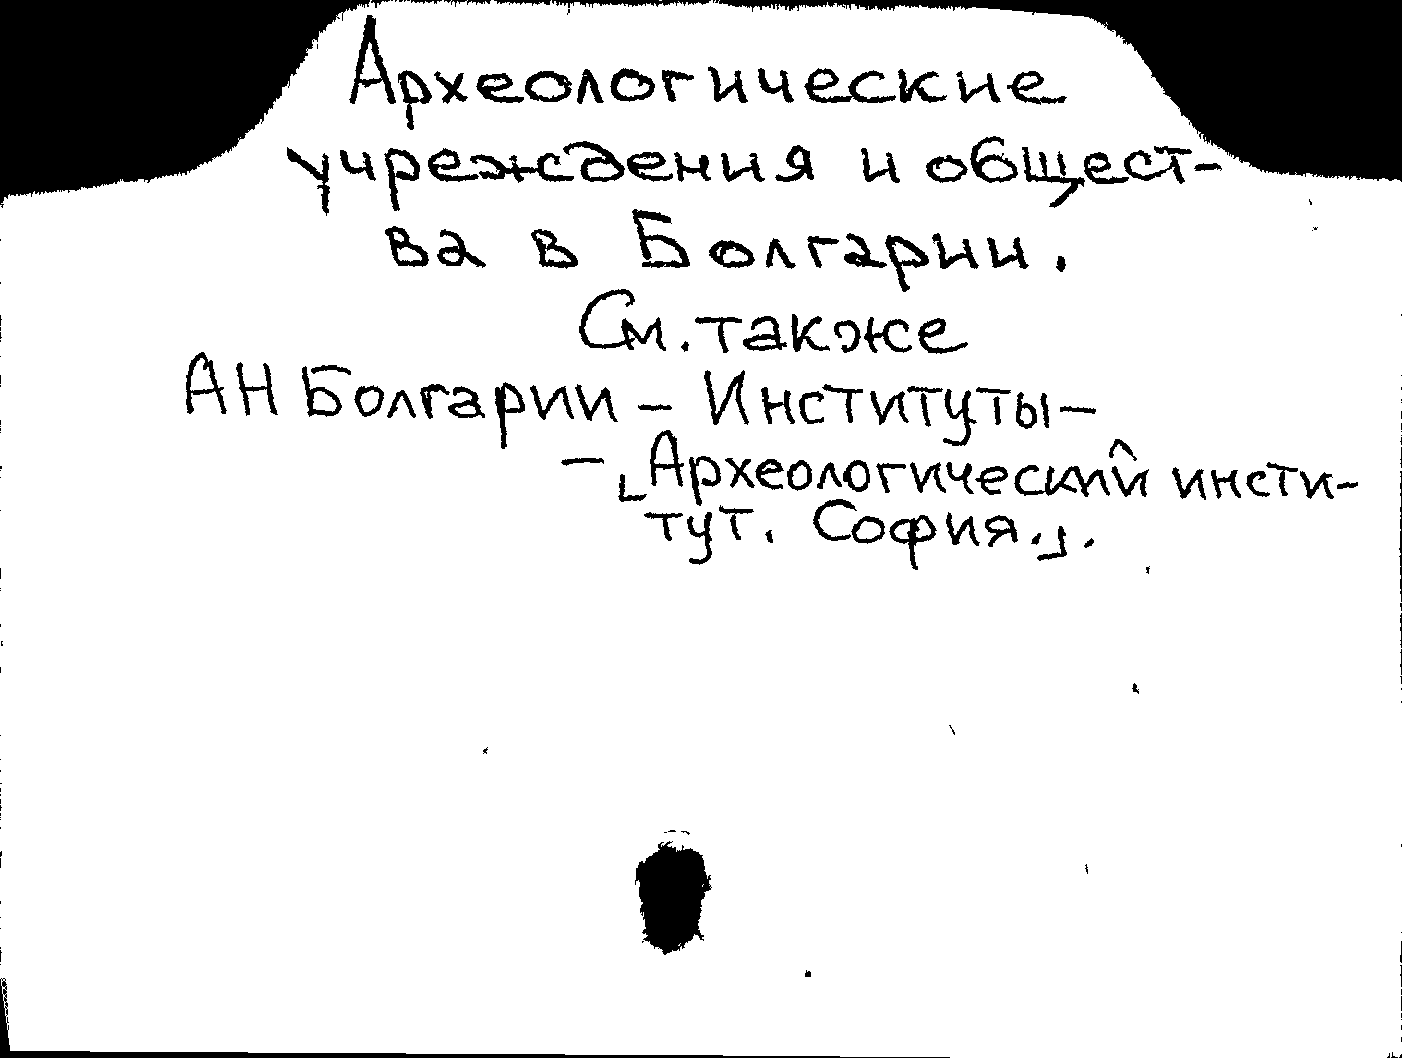 Археологические
учреждения и общест-
ва в Болгарии.
См. также
АН Болгарии – Институты –
– ⌊Археологический инсти-
тут. София.⌋.